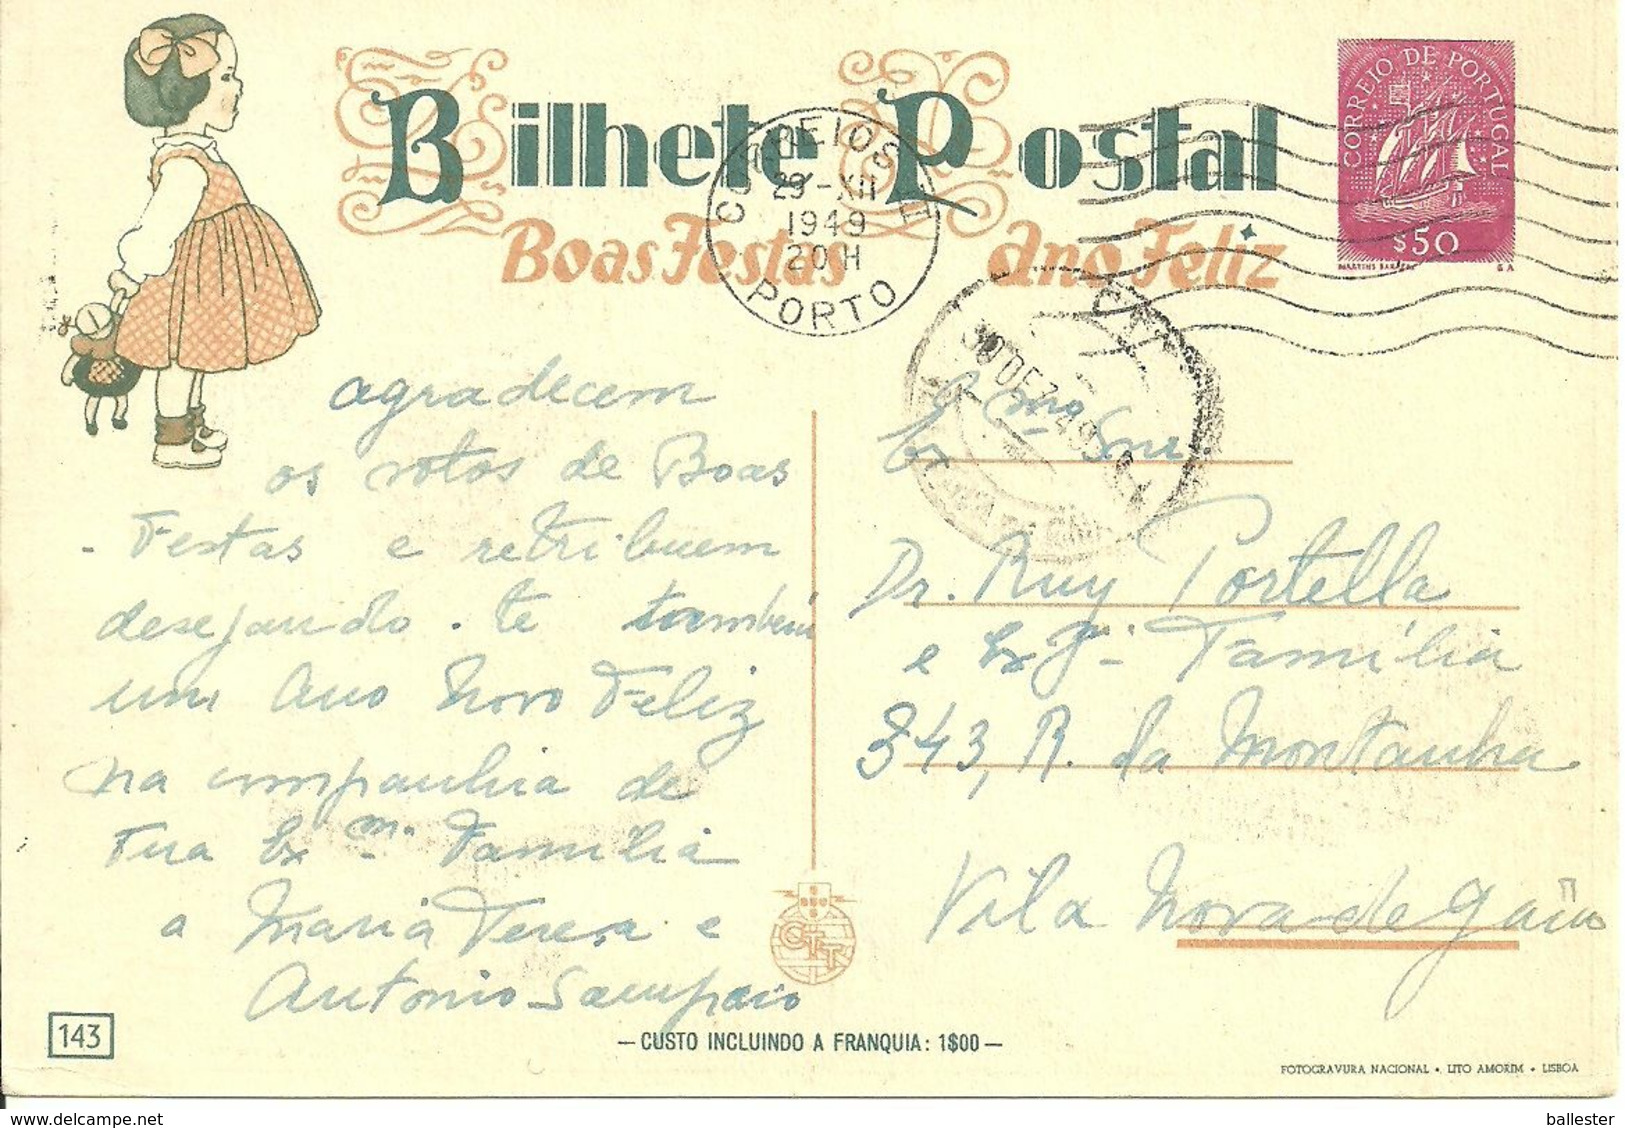 Bilhete Postal
Boas Festas Ano Feliz
CORREIO DE PORTUGAL
$50
CORREIOS
29-XII
1949
20H
PORTO
30 DEZ 49
agradecem
os votos de Boas
Festas e retribuem
desejando-te também
um Ano Novo Feliz
na companhia de
Tua Exmª Família
a Maria Teresa e
Antonio Sampaio
Exmo Snr
Dr. Ruy Portella
e Exª Família
343, R. da Montanha
Vila Nova de Gaia
CTT
143
— CUSTO INCLUINDO A FRANQUIA: 1$00 —
FOTOGRAVURA NACIONAL • LITO AMORIM • LISBOA
delcampe.net
ballester